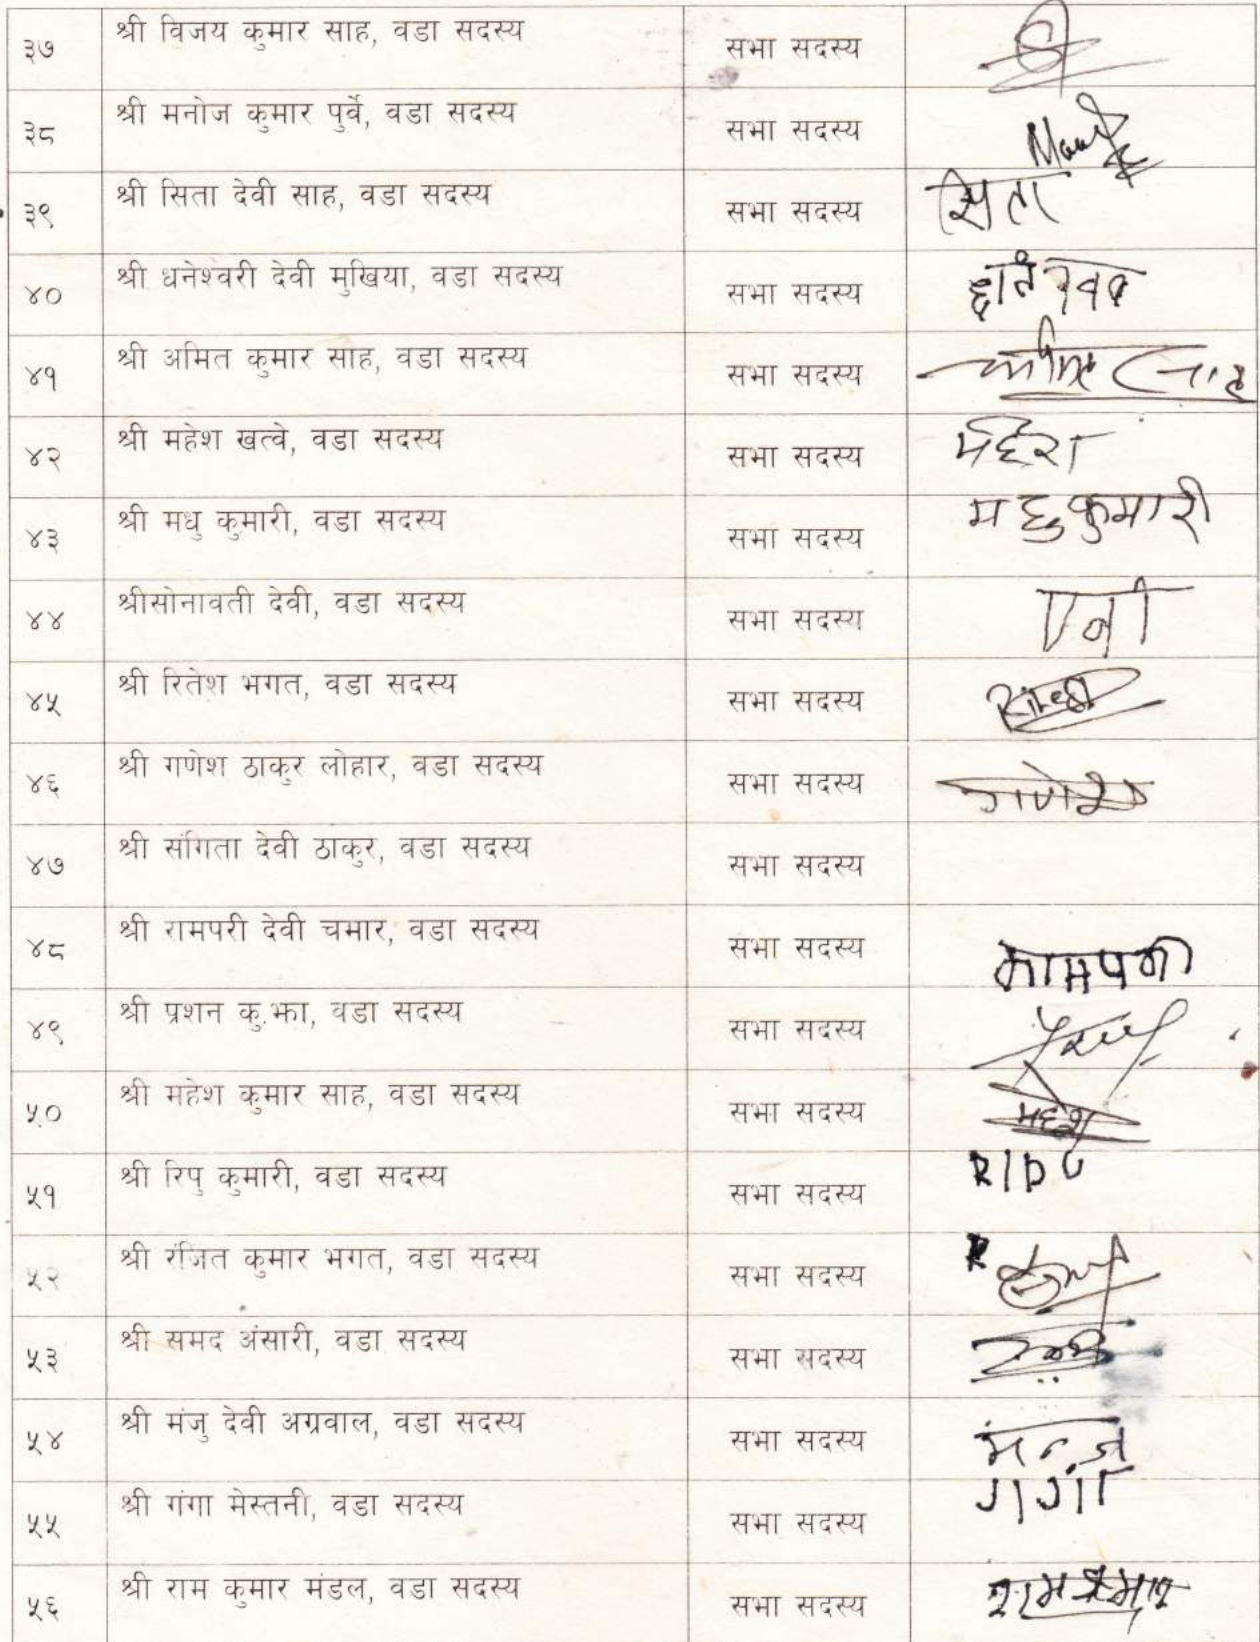 ३७ श्री विजय कुमार साह, वडा सदस्य सभा सदस्य
३८ श्री मनोज कुमार पुर्वे, वडा सदस्य सभा सदस्य
३९ श्री सिता देवी साह, वडा सदस्य सभा सदस्य सिता
४० श्री धनेश्वरी देवी मुखिया, वडा सदस्य सभा सदस्य
४१ श्री अमित कुमार साह, वडा सदस्य सभा सदस्य
४२ श्री महेश खत्वे, वडा सदस्य सभा सदस्य महेश
४३ श्री मधु कुमारी, वडा सदस्य सभा सदस्य मधुकुमारी
४४ श्रीसोनावती देवी, वडा सदस्य सभा सदस्य
४५ श्री रितेश भगत, वडा सदस्य सभा सदस्य Ritesh
४६ श्री गणेश ठाकुर लोहार, वडा सदस्य सभा सदस्य गणेश
४७ श्री संगिता देवी ठाकुर, वडा सदस्य सभा सदस्य
४८ श्री रामपरी देवी चमार, वडा सदस्य सभा सदस्य
४९ श्री प्रशन कु.झा, वडा सदस्य सभा सदस्य
५० श्री महेश कुमार साह, वडा सदस्य सभा सदस्य महेश
५१ श्री रिपु कुमारी, वडा सदस्य सभा सदस्य RIPU
५२ श्री रंजित कुमार भगत, वडा सदस्य सभा सदस्य R
५३ श्री समद अंसारी, वडा सदस्य सभा सदस्य
५४ श्री मंजु देवी अग्रवाल, वडा सदस्य सभा सदस्य
५५ श्री गंगा मेस्तनी, वडा सदस्य सभा सदस्य गंगा
५६ श्री राम कुमार मंडल, वडा सदस्य सभा सदस्य